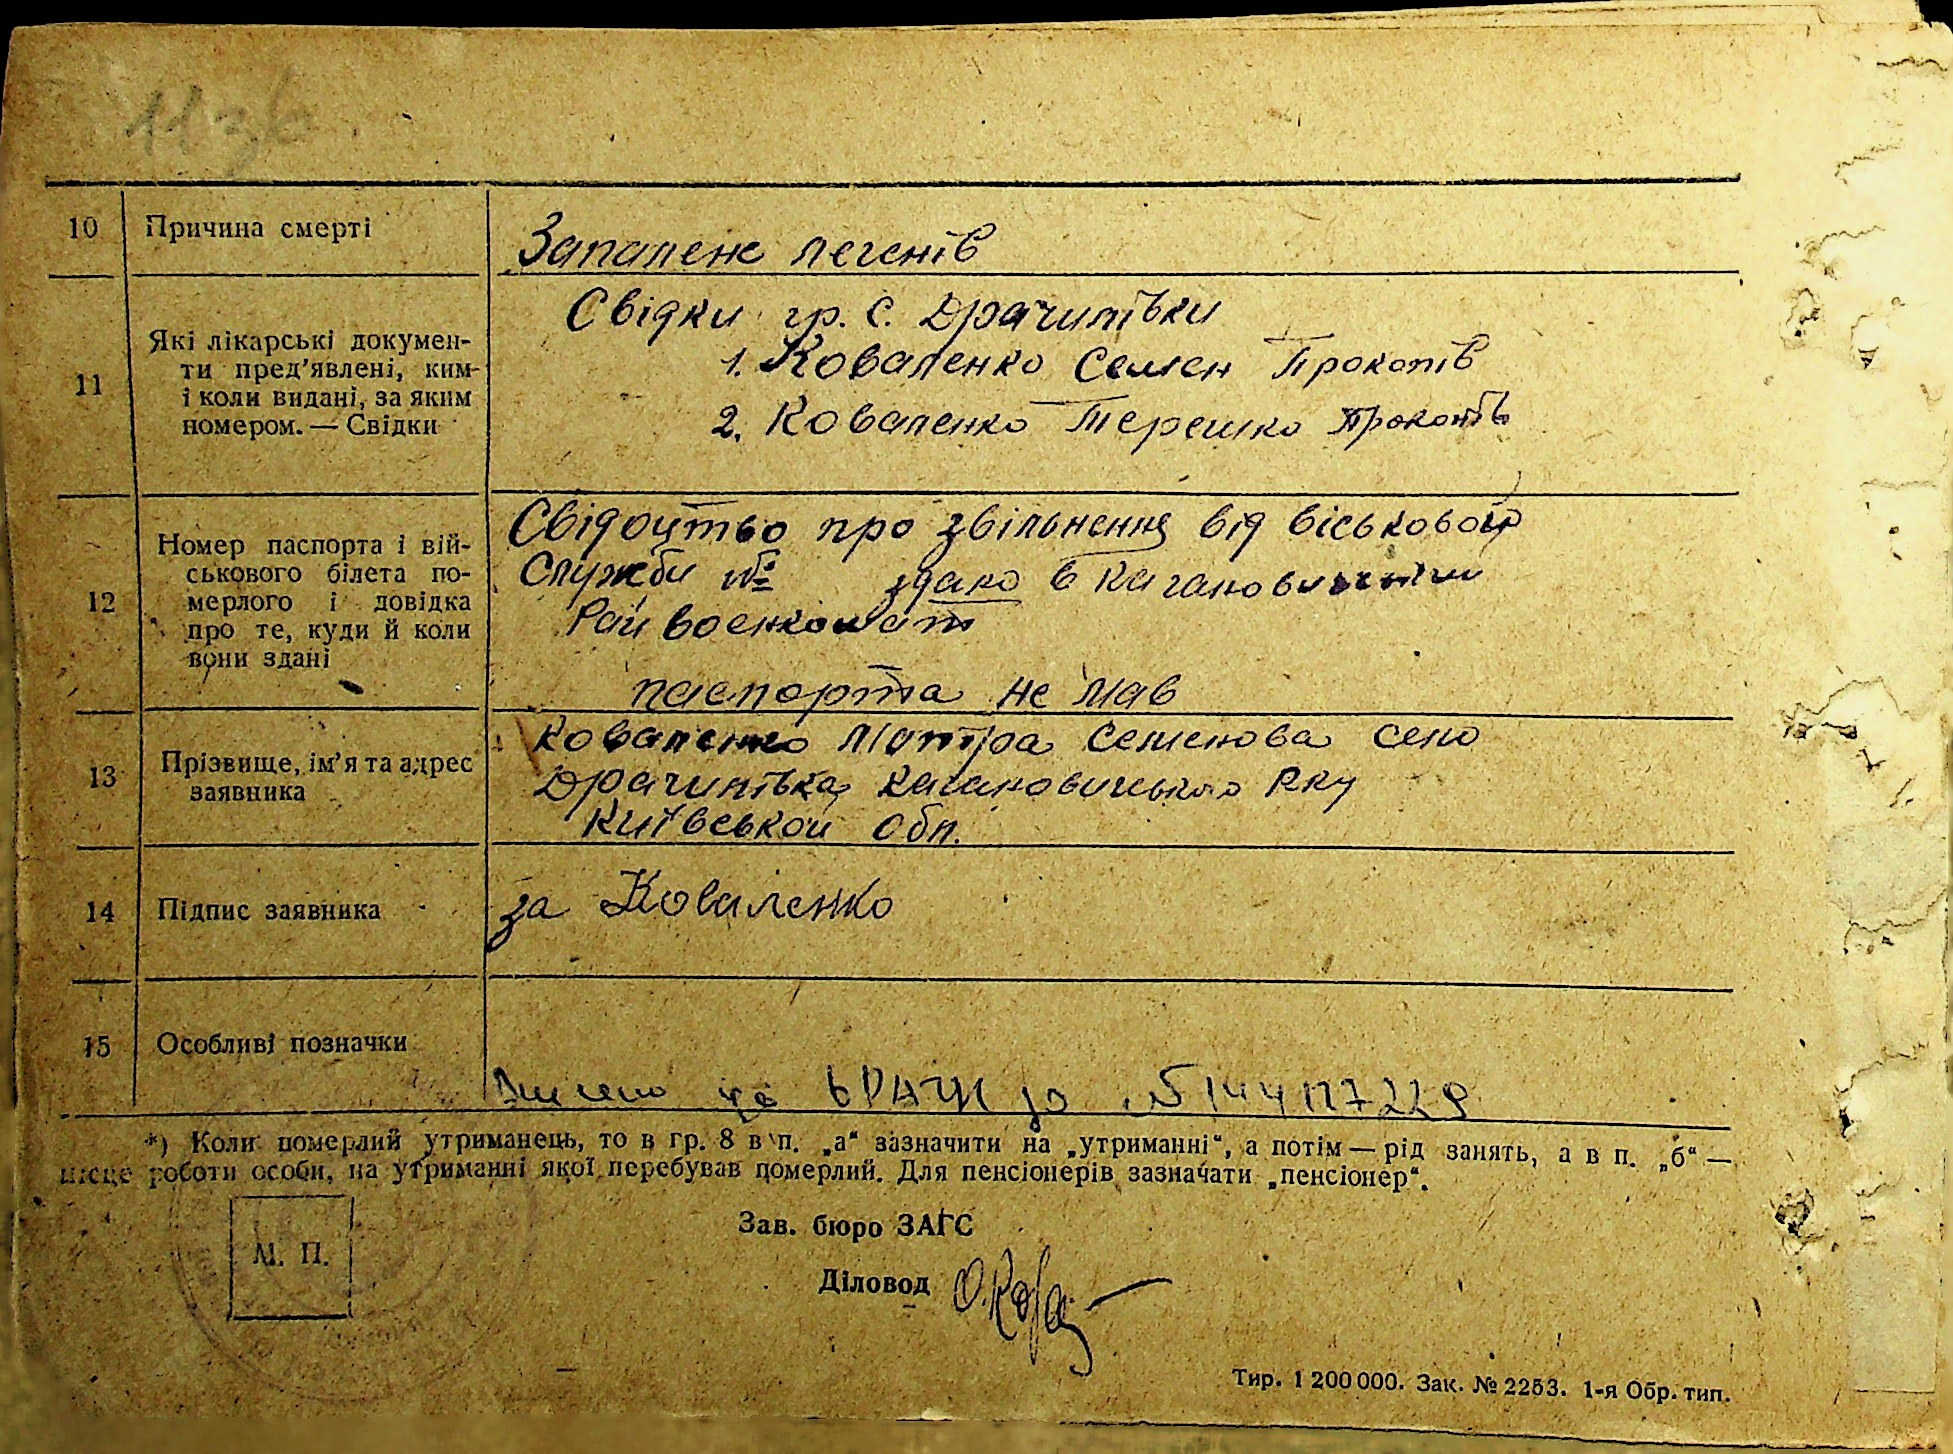 11 зв.
10 Причина смерті
Запаленє легенів
11 Які лікарські докумен-
ти пред'явлені, ким
і коли видані, за яким
номером. — Свідки
Свідки гр. с. Драчипівки
1. Коваленко Семен Прокопів
2. Коваленко Терешко Прокопів
12 Номер паспорта і вій-
ськового білета по-
мерлого і довідка
про те, куди й коли
вони здані
Свідоцтво про звільнення від віськовой
Служби № здано в Кагановичский
Райвоенкомат
паспорта не мав
13 Прізвище, ім'я та адрес
заявника
Коваленко Мотра Семенова село
Драчипівка Кагановичського Рну
Київськой обл.
14 Підпис заявника
за Коваленко
15 Особливі позначки
до ДРАЦС за №144117229
*) Коли померлий утриманець, то в гр. 8 в п. „а“ зазначити на „утриманні“, а потім — рід занять, а в п. „б“ —
місце роботи особи, на утриманні якої перебував померлий. Для пенсіонерів зазначати „пенсіонер“.
М. П.
Зав. бюро ЗАГС
Діловод
Тир. 1 200 000. Зак. № 2253. 1-я Обр. тип.